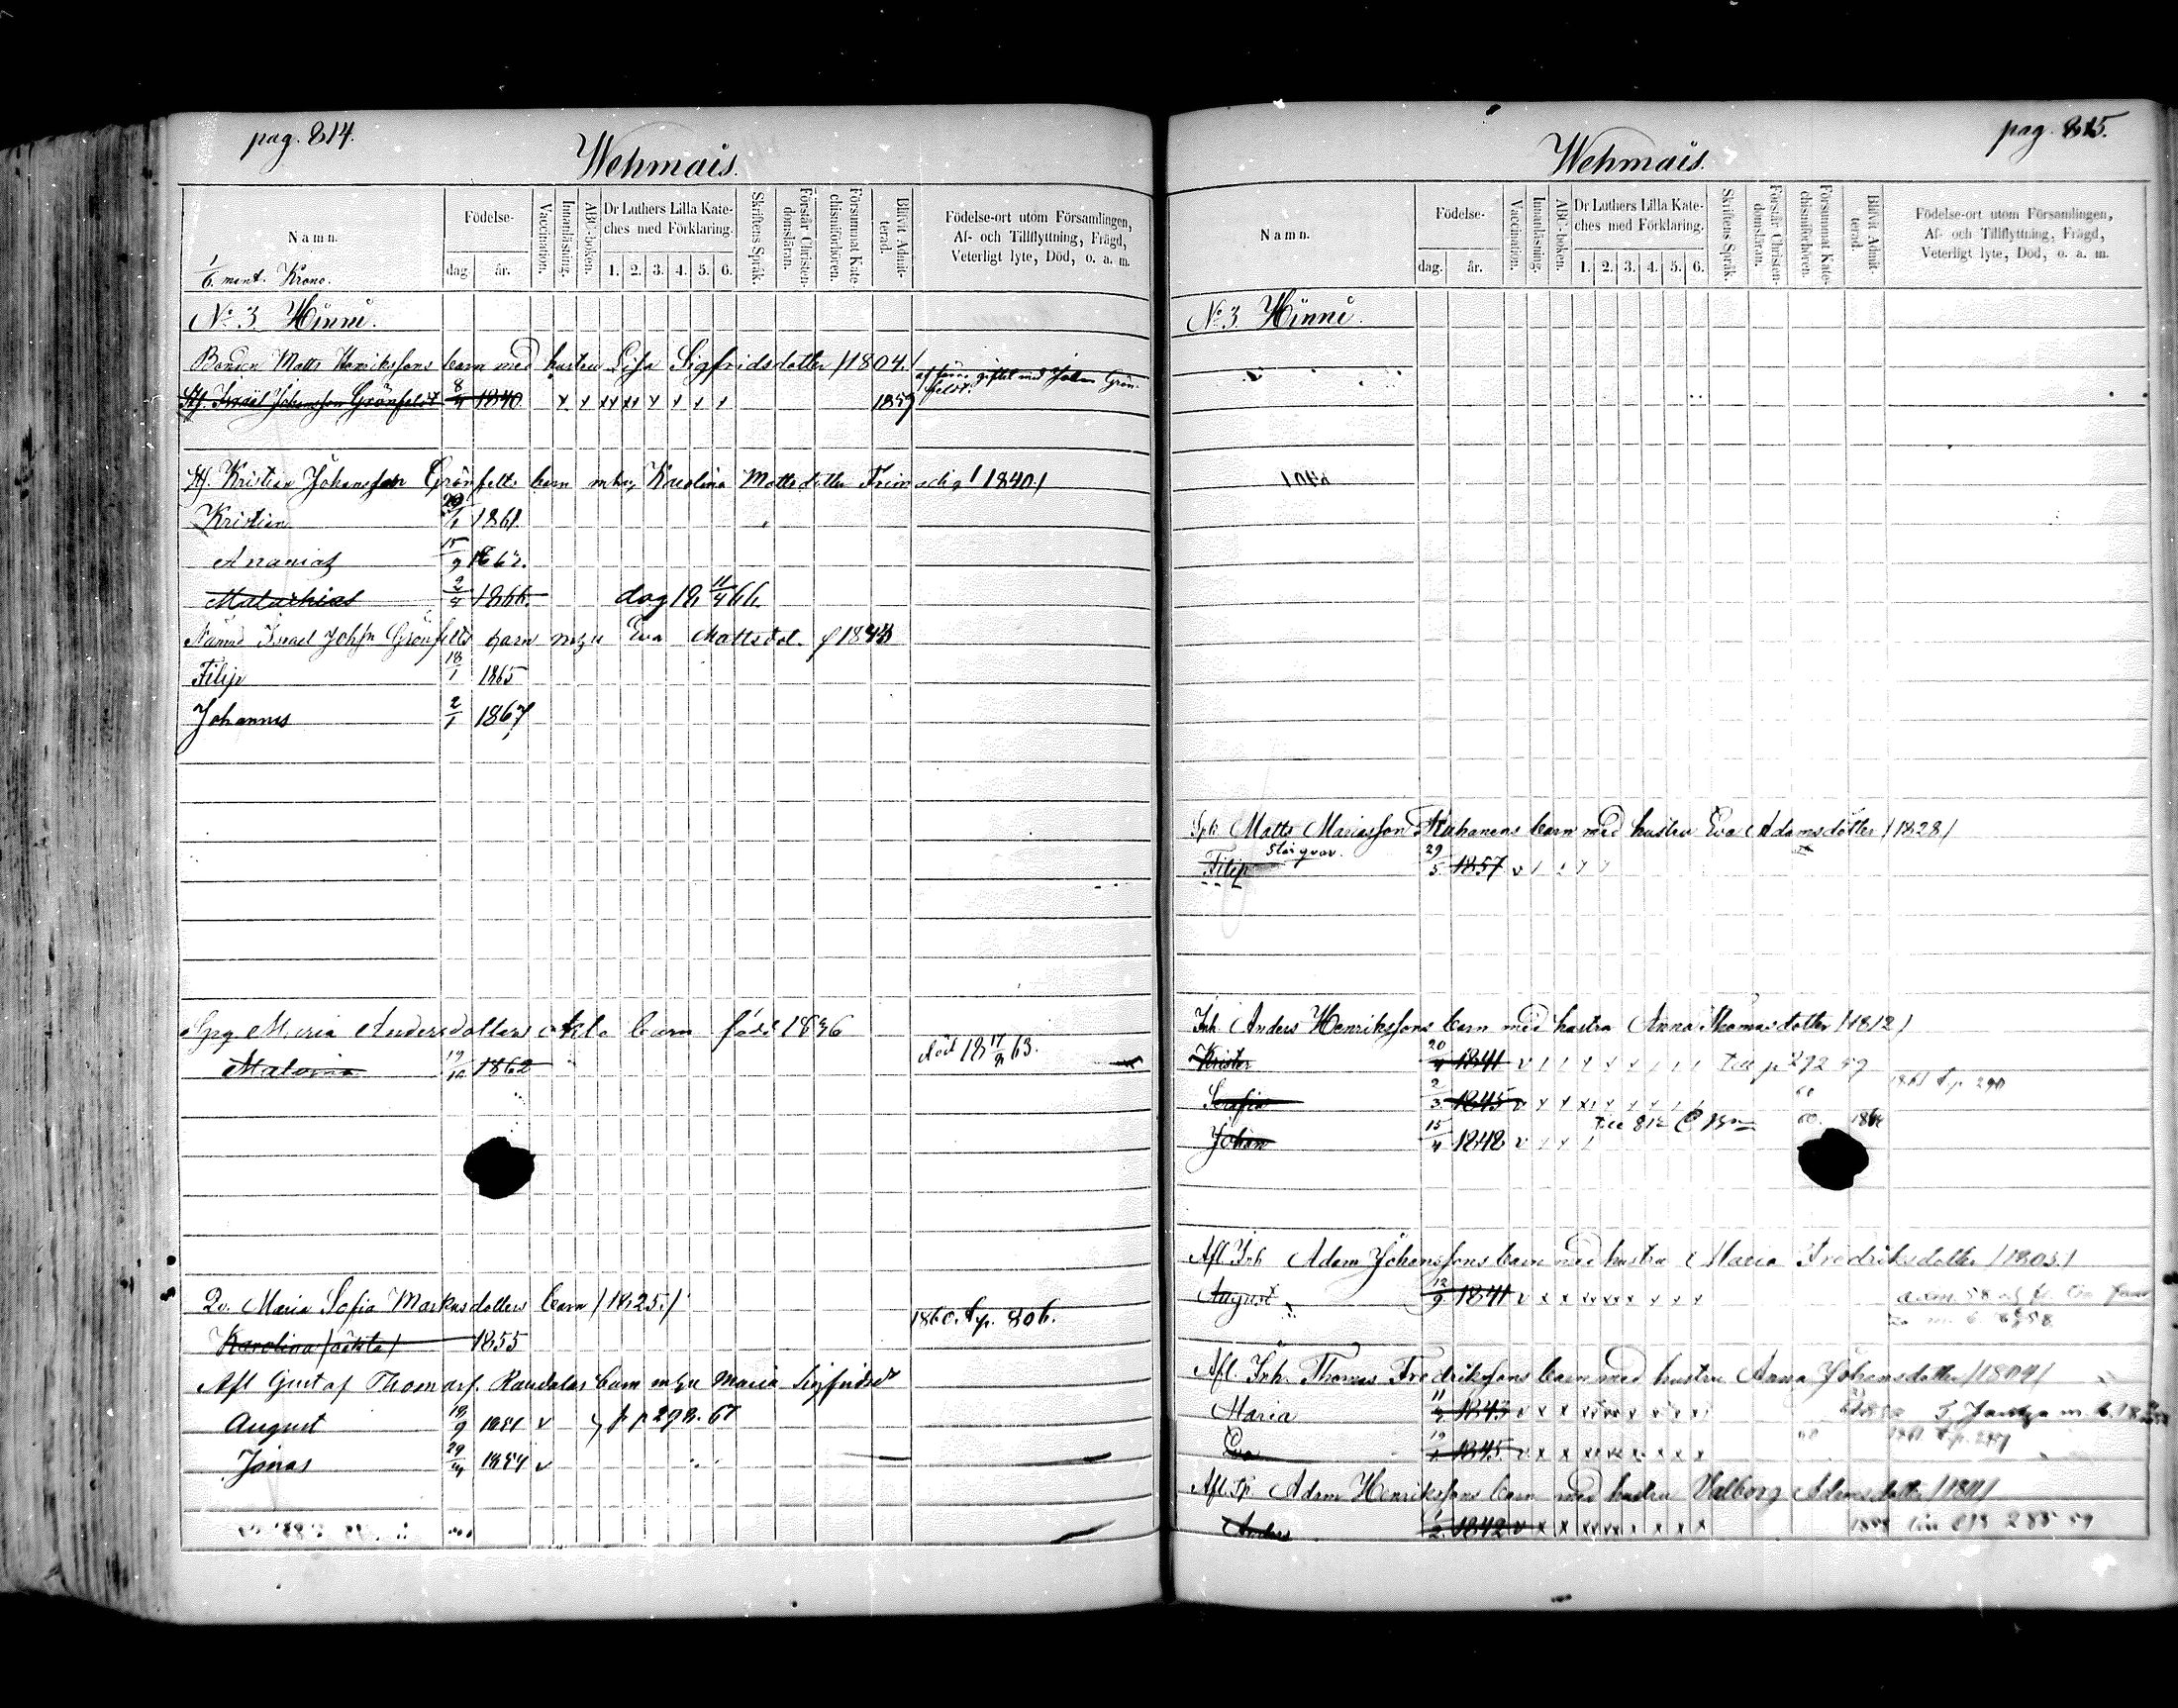 pag. 814.
Wehmais.
Namn.
Födelse-
dag.
år.
Vaccination.
Innanläsning.
ABC-boken.
Dr Luthers Lilla Kate-
ches med Förklaring.
1. 2. 3. 4. 5. 6.
Skriftens Språk.
Förstår Christen-
domsläran.
Försummat Kate-
chismiförhören.
Blifvit Admit-
terad.
Födelse-ort utom Församlingen,
Af- och Tillflyttning, Frägd,
Veterligt lyte, Död, o. a. m.
1/6 mant. Krono.
No 3 Hinni.
Bonden Matts Henrikssons barn med hustru Lisa Sigfridsdotter /1804./
Israel Johansson Grönfeldt 8/4 1840 1859
Kristian Johansson Grönfelts barn mhu Karolina Mattsdotter /1840/
Kristian 1861
Ananias 15/9 1862.
Malachias 2/4 1866. dog 18 11/4 66.
Israel Johsn Grönfelts barn mhu Eva Mattsdot.
Filip 18/1 1865
Johannes 2/1 1867
Maria Andersdotters barn född 1836
Malvina 1862 död 18 63.
Maria Sofia Markusdotters barn /1825./
Karolina /oäkta/ 1855 1860. p. 806.
Afl Gustaf Thomass. Raudalas barn mhu Maria Sigfridsdr
August 18/9 1851 v p 298. 67
Jonas 1854 v
pag. 815.
Wehmais.
Namn.
Födelse-
dag.
år.
Vaccination.
Innanläsning.
ABC-boken.
Dr Luthers Lilla Kate-
ches med Förklaring.
1. 2. 3. 4. 5. 6.
Skriftens Språk.
Förstår Christen-
domsläran.
Försummat Kate-
chismiförhören.
Blifvit Admit-
terad.
Födelse-ort utom Församlingen,
Af- och Tillflyttning, Frägd,
Veterligt lyte, Död, o. a. m.
No 3 Hinni.
Matts Mariasson barn med hustru Eva Adamsdotter /1828/
Filip 29/5 1857
Inh. Anders Henrikssons barn med hustru Anna Thomasdotter /1812/
Krister 1841 till p 272 59
Serafia 2/3 1845 60 1861 p. 290
Johan 15/4 1848 60.
Afl Inh Adam Johanssons barn med hustru Maria Fredriksdotter /1805./
August 12/9 1841
Afl. Inh. Thomas Fredrikssons barn med hustru Anna Johansdotter /1804/
Maria 1843
Eva 1845
Afl. Adam Henrikssons barn med hustru Valborg Adamsdotter /1811/
Anders 1842 285 59